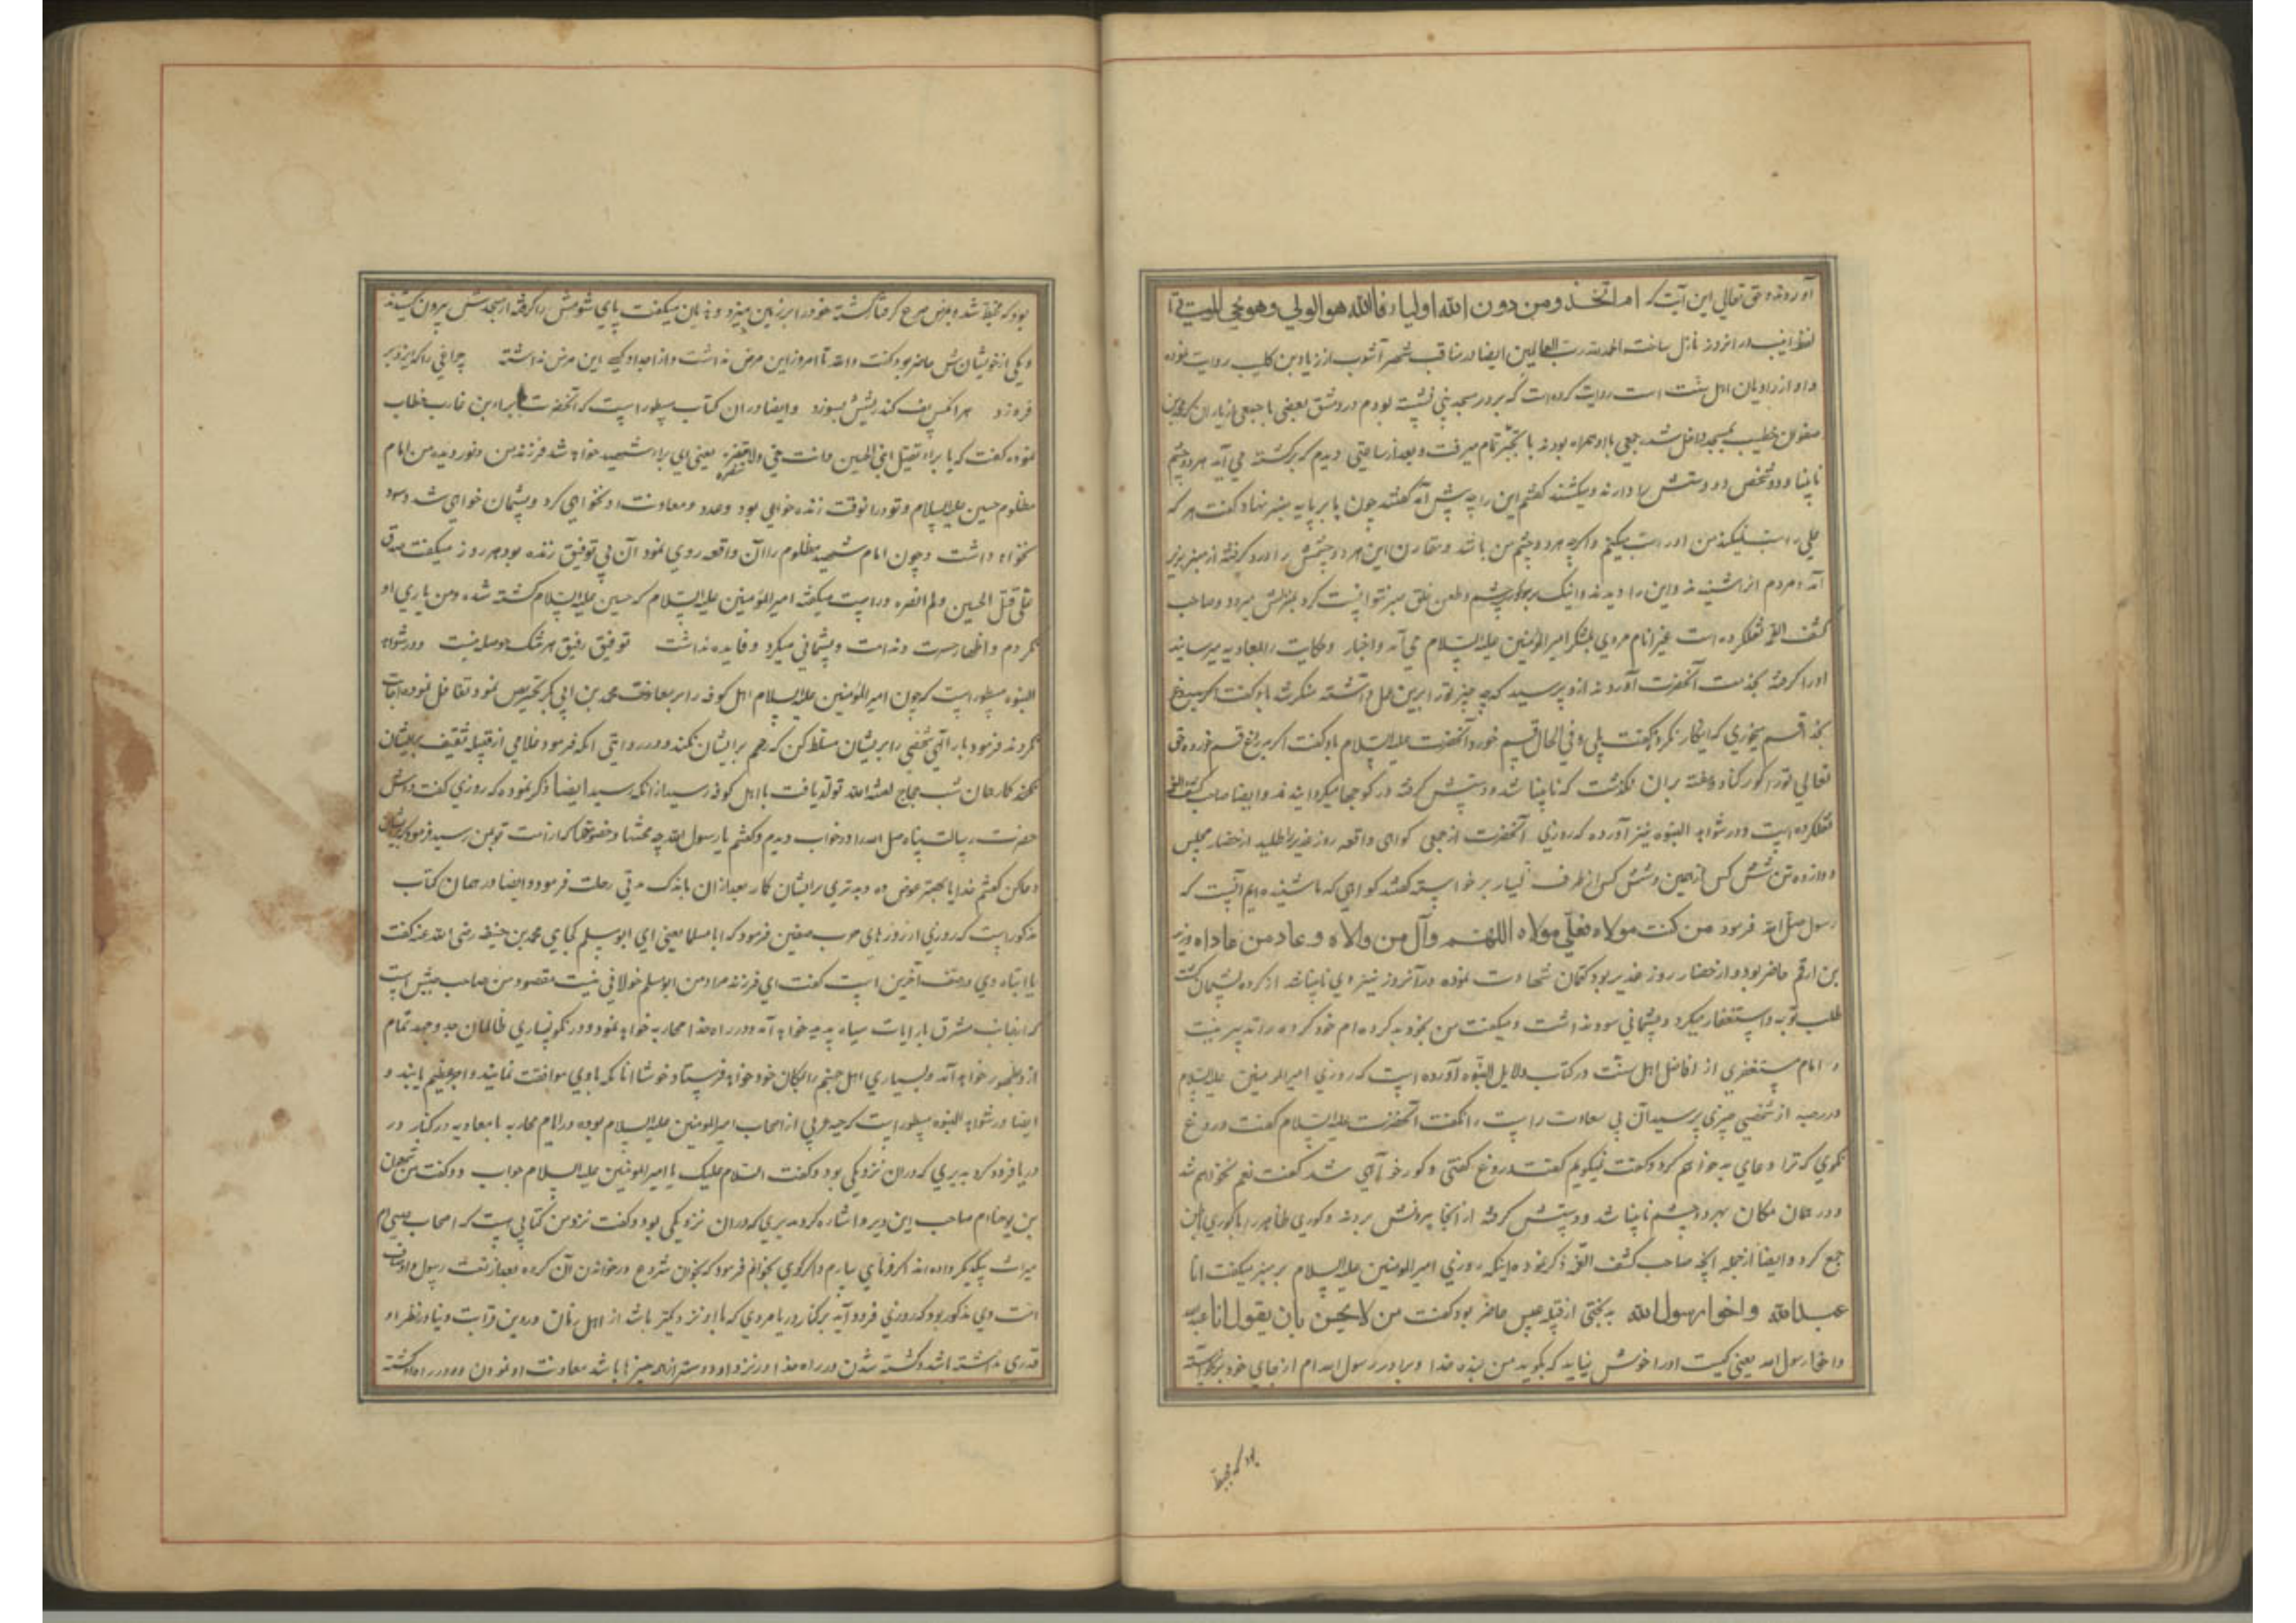 آوردند و حق تعالی این آیت که ام اتخذوا من دون الله اولیاء فالله هو الولی وهو یحیی الموتی تا
در انروز نازل ساخت الحمد لله رب العالمین ایضا در مناقب شهر آشوب از زیاد بن کلیب روایت نموده
و او از راویان اهل سنت است روایت کرده است که بر در مسجد بنی نشسته بودم در دمشق بعضی با جمعی از یاران که محمد بن
صفوان خطیب بمسجد داخل شد جمعی با او همراه بودند با تجبر تمام میرفت و بعد از ساعتی دیدم که برگشته می آید هر دو چشم
نابینا و دو شخص دو دستش را دارند و میکشند گفتم این را چه پیش آمد گفتند چون پا بر پایه منبر نهاد گفت هر که
علی را سب نمیکند من او را سب میکنم و اگرچه هر دو چشم من باشد و مقارن این هر دو چشمش را درد گرفته از منبر بزیر
آمد و مردم انرا شنیدند و این را دیدند و اینک بر کوری چشم و طعن خلق صبر نتوانست کرد بمنزلش میرود و صاحب
کشف الغمه نقل کرده است عیزار نام مردی بلشکر امیر المؤمنین علیه السلام می آمد و اخبار و حکایت را بمعاویه میرسانید
او را گرفته بخدمت آنحضرت آوردند ازو پرسید که چه چیز تو را برین عمل داشته منکر شد باو گفت اگر بدروغ
بخدا قسم میخوری که اینکار نکردی گفت بلی و فی الحال قسم خورد آنحضرت علیه السلام باو گفت اگر بدروغ قسم خورده حق
تعالی تو را کور کناد و هفته بران نگذشت که نابینا شد و دستش گرفته در کوچها میگردانیدند و ایضا صاحب کشف الغمه
نقل کرده است و در شواهد النبوه نیز آورده که روزی آنحضرت از جمعی گواهی واقعه روز غدیر را طلبید از حضار مجلس
دوازده تن شش کس از یمین و شش کس از طرف یسار برخواسته گفتند گواهی که ما شنیده ایم آنست که
رسول صلی الله فرمود من کنت مولاه فعلی مولاه اللهم وال من والاه و عاد من عاداه و زید
بن ارقم حاضر بود و از حضار روز غدیر بود کتمان شهادت نموده در آنروز نیز وی نابینا شد از کرده پشیمان گشت
طلب توبه و استغفار میکرد و پشیمانی سود نداشت و میگفت من بخود بد کرده ام خود کرده را تدبیر نیست
و امام مستغفری از افاضل اهل سنت در کتاب دلایل النبوه آورده است که روزی امیر المومنین علیه السلام
در رحبه از شخصی چیزی پرسید آن بی سعادت راست را نگفت آنحضرت علیه السلام گفت دروغ
نگوی که ترا دعای بد خواهم کرد و گفت نمیگویم گفت دروغ گفتی و کور خواهی شد گفت نعم نخواهم شد
و در همان مکان بهر دو چشم نابینا شد و دستش گرفته از آنجا بیرونش بردند و کوری ظاهر را با کوری باطن
جمع کرد و ایضا از جمله آنچه صاحب کشف الغمه ذکر نموده اینکه روزی امیر المومنین علیه السلام بر منبر میگفت انا
عبد الله و اخو رسول الله بدبختی از قبیله عبس حاضر بود گفت من لا یحسن بان یقول انا عبد الله
و اخو رسول الله یعنی کیست او را خوش نیاید که بگوید من بنده خدا و برادر رسول الله ام از جای خود برنخواسته
بود که مخبط
بود که مخبط شد و بمرض صرع گرفتار گشته خود را بر زمین میزد و هذیان میگفت پای شومش را گرفته از مسجدش بیرون کشیدند
و یکی از خویشانش حاضر بود گفت والله تا امروز این مرض نداشت و از اجداد کسی این مرض نداشته چراغی را که ایزد بر
فروزد هر آنکس پف کند ریشش بسوزد و ایضا در ان کتاب مسطور است که آنحضرت ببراء بن عازب خطاب
نموده گفت که یا براء تقتل ابنی الحسین و انت حی و لا تنصره یعنی ای براء شهید خواهد شد فرزند من و نور دیده من امام
مظلوم حسین علیه السلام و تو در انوقت زنده خواهی بود و مدد و معاونت او نخواهی کرد و پشیمان خواهی شد و سود
نخواهد داشت و چون امام شهید مظلوم را آن واقعه روی نمود آن بی توفیق زنده بود هر روز میگفت صدق
علی قتل الحسین و لم انصره و راست میگفته امیر المؤمنین علیه السلام که حسین علیه السلام کشته شده و من یاری او
نکردم و اظهار حسرت و ندامت و پشیمانی میکرد و فایده نداشت توفیق رفیق هر تنک حوصله نیست و در شواهد
النبوه مسطور است که چون امیر المؤمنین علیه السلام اهل کوفه را بر معاونت محمد بن ابی بکر تحریص نمود تغافل نموده اجابت
نکردند فرمود بار الهی شخصی را بریشان مسلط کن که رحم بر ایشان نکند و در روایتی انکه فرمود غلامی از قبیله ثقیف بریشان
کار همان شب حجاج لعنه الله تولد یافت باهل کوفه رسید ازانکه رسید ایضا ذکر نموده که روزی گفت دوش
حضرت رسالت پناه صلی الله را در خواب دیدم و گفتم یا رسول الله چه محنتها و خصومتها که از امت تو بمن رسید فرمود
دعا کن گفتم خدایا بهتر عوضی ده و بدتری بر ایشان گمار بعد ازان باندک مدتی رحلت فرمود و ایضا در همان کتاب
مذکور است که روزی از روزهای حرب صفین فرمود که ابا مسلما یعنی ای ابو مسلم کجایی محمد بن حنیفه رضی الله عنه گفت
یا ابتاه وی در صف آخرین است گفت ای فرزند مراد من ابو مسلم خولانی نیست مقصود من صاحب جیش است
که از جانب مشرق با رایات سیاه پدید خواهد آمد و در راه خدا محاربه خواهد نمود و در نگونساری ظالمان جد و جهد تمام
ازو بظهور خواهد آمد و بسیاری اهل جهنم را بمکان خود خواهد فرستاد و خوشا انانکه باوی موافقت نمایند و اجر عظیم یابند و
ایضا در شواهد النبوه مسطور است که حبه عرنی از اصحاب امیر المومنین علیه السلام بوده در ایام محاربه با معاویه در کنار
دریا فرود کرد بدیری که دران نزدیکی بود و گفت السلام علیک یا امیر المؤمنین علیه السلام جواب و گفت من شمعون
بن یوحنا ام صاحب این دیر و اشاره کرد بدیری که دران نزدیکی بود و گفت نزد من کتابی هست که اصحاب عیسی ام
میراث بیکدیگر داده اند اگر فرمای بیارم و اگر گوی بخوانم فرمود که بخوان شروع در خواندن آن کرده بعد از نعت رسول و اوصاف
امت وی مذکور بود که روزی فرود آید بر کنار دریا مردی که باو نزدیکتر باشد از اهل زمان در دین و قرابت و دنیا در نظر او
قدری نداشته باشد و کشته شدن در راه خدا در نزد او دوستر از همه چیزها باشد معاونت او نمودن و در راه او کشته